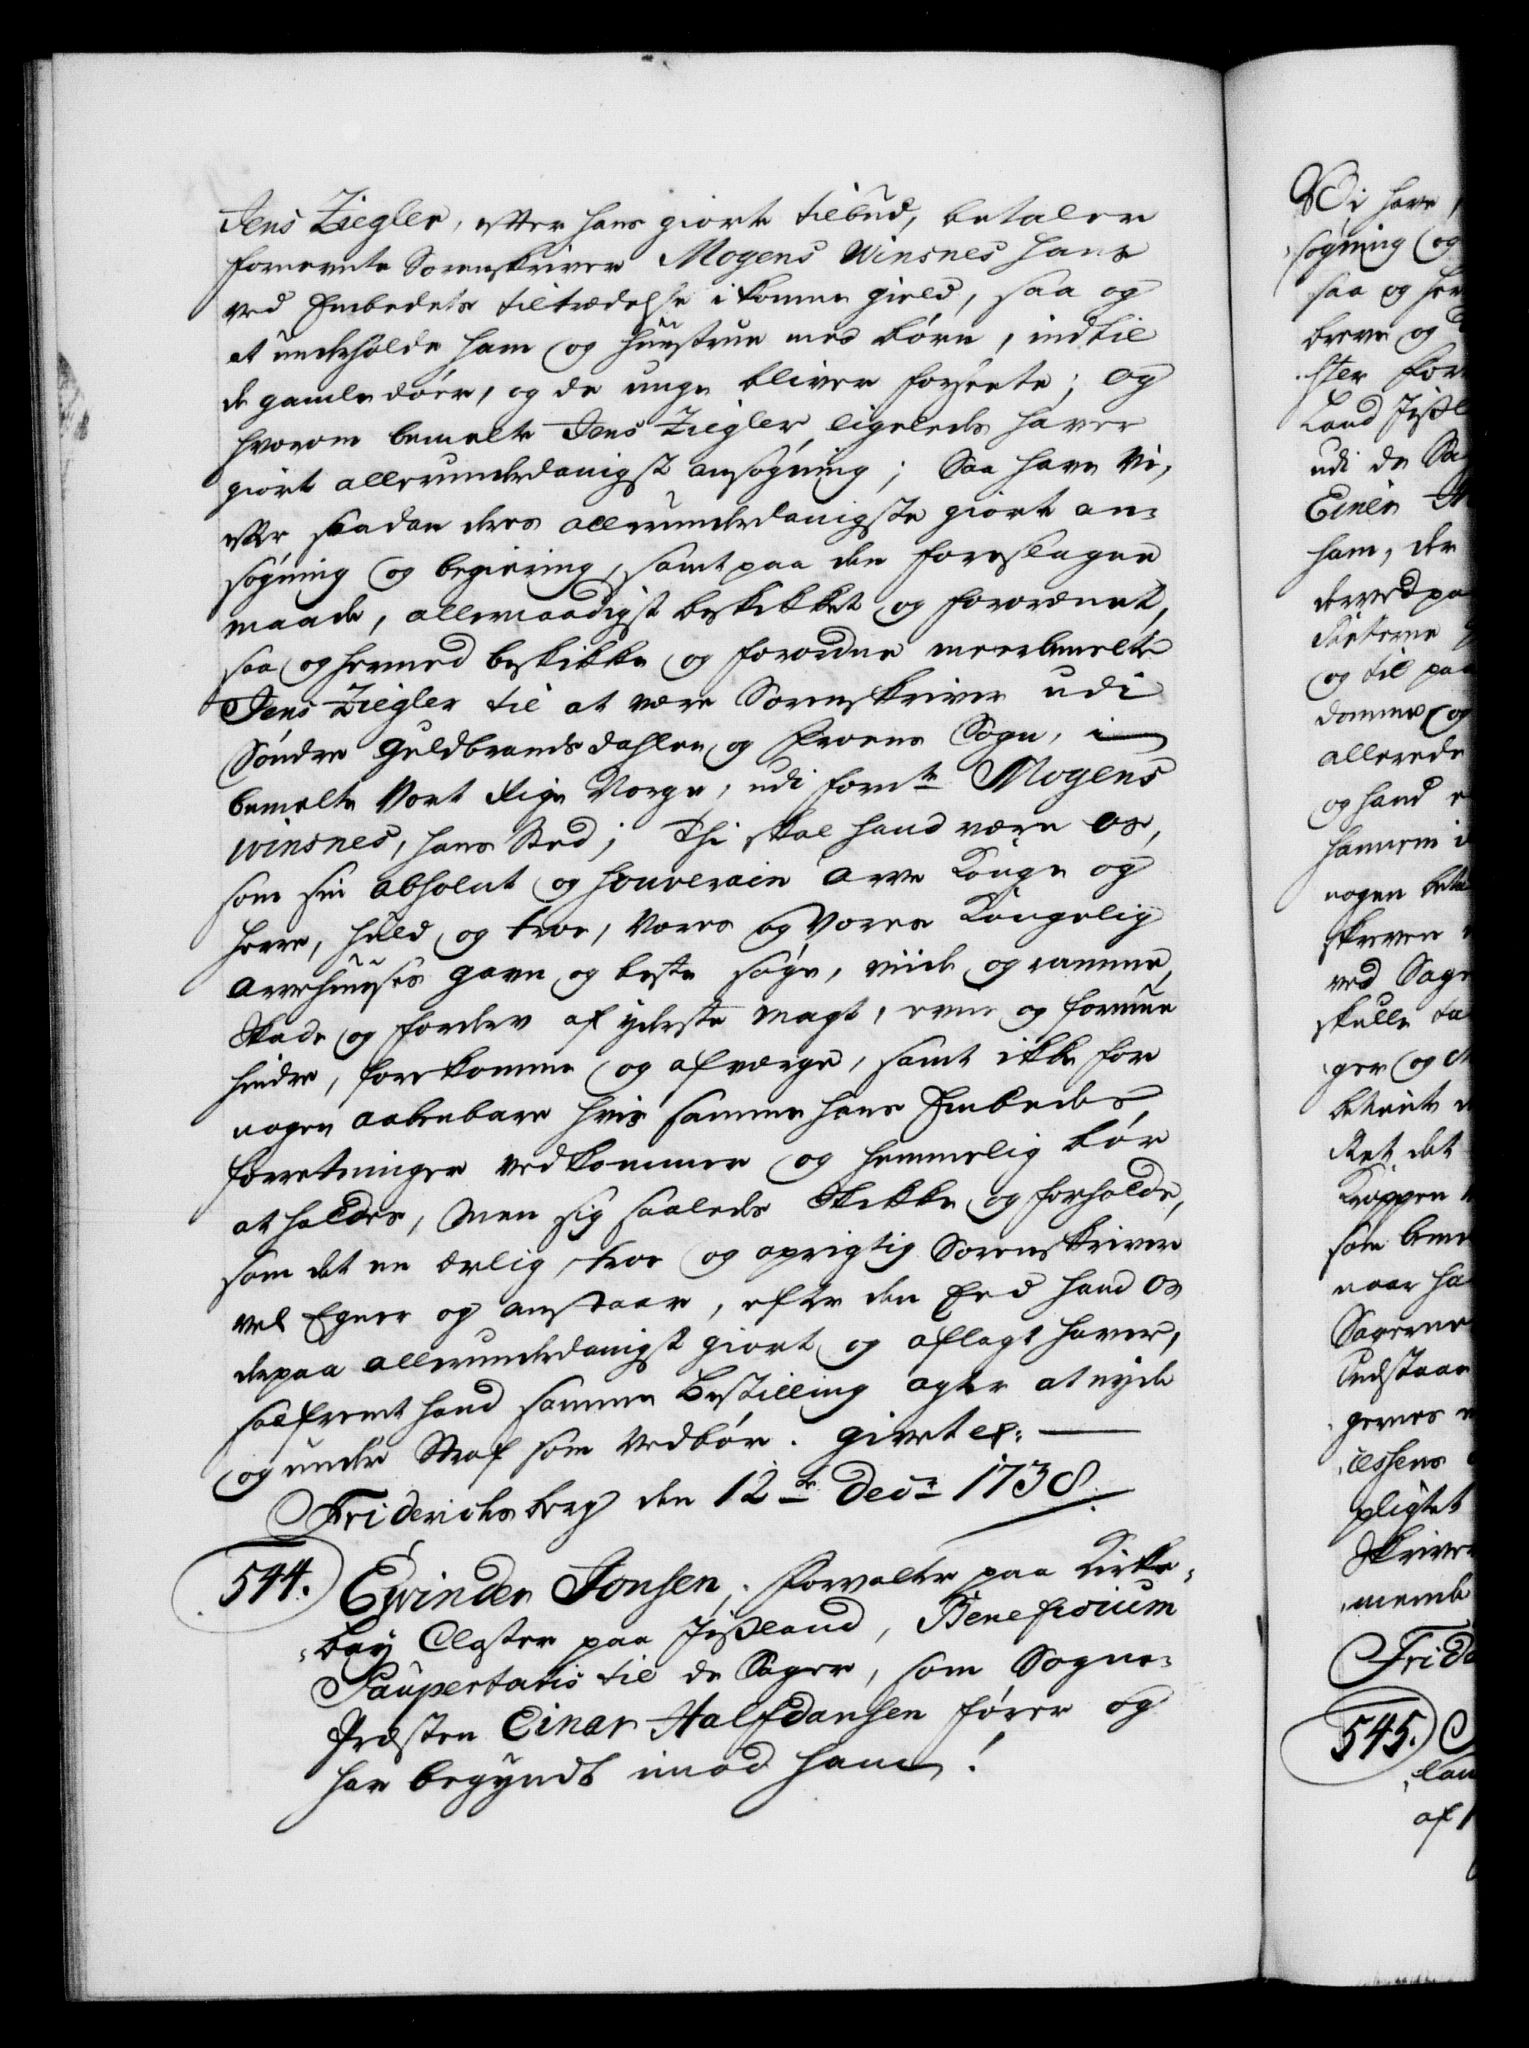 Jens Ziegler, efter hans giorte tilbud, betaler
fornevnte Sorenskriver Mogens Winsnes hans
ved Embedets tiltrædelse i komne gield, saa og
at underholde ham og Huustrue med børn, indtil
de gamle døer, og de unge bliver forsørte; og
hvorom bemelte Jens Ziegler ligeleds haver
giort allerunderdanigst ansøgning; Saa have Vi,
efter saadan deres allerunderdanigste giorte an-
søgning og begiering, samt paa den foreslagne
maade, allernaadigst beskikket og forordnet,
saa og hermed beskikke og forordne meerbemelte
Jens Ziegler til at være Sorenskriver udi
Søndre Guldbrandsdahlen og Froens Sogn, i
bemelte Vort Rige Norge, udi fornte Mogens
Winsnes, hans Sted; Thi skal hand være os,
som sin absolut og souverain Arve Konge og
Herre, huld og troe, Vores og Vores Kongelig
Arvehuuses gavn og beste søge, viide og ramme,
Skade og forderv af yderste magt, evne og formue
hindre, forekomme og afværge, samt ikke for
nogen aabenbare hvis samme hans Embedes
forretninger vedkommer og hemmelig bør
at holdes, Men sig saaleds skikke og forholde,
som det en ærlig, troe og oprigtig Sorenskriver
vel Egner og anstaar, efter den Eed hand Os
depaa allerunderdanigst giort og aflagt haver,
saafremt hand samme Bestilling agter at nyde
og under Straf som Vedbør. givet ex:
Friderichsberg den 12te Decr 1738.
544. Ewinder Jonsen, Forvalter paa Kirke-
bay Closter paa Jisland, Beneficium
Paupertatis til de Sager, som Sogne-
Præsten Einar Halfdansen fører og
har begyndt imod ham!
Vi have
søgning og
saa og her
breve og
ster for
Land Jisl
udi de Sa
Einer
ham, der
derved pa
Retterne
og til paa
domme og
allerede
og hand
hannem i
nogen beta
skreven
ved Sage
skulle ta
ger og
betient
Ret det
Kroppen
som beme
naar ha
Sagerne
Indstaar
gernes
cessens
pligtet
Skriver
meente
Frid
545.
lan
af